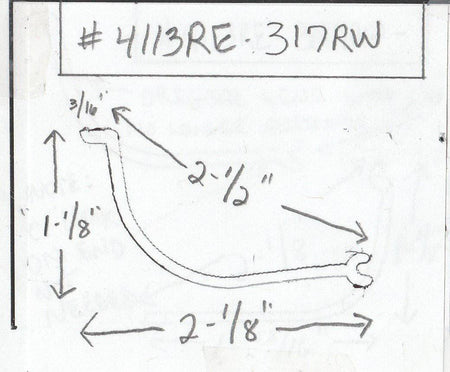 #4113RE-317RW
3/16"
2-1/2"
1-1/8"
2-1/8"